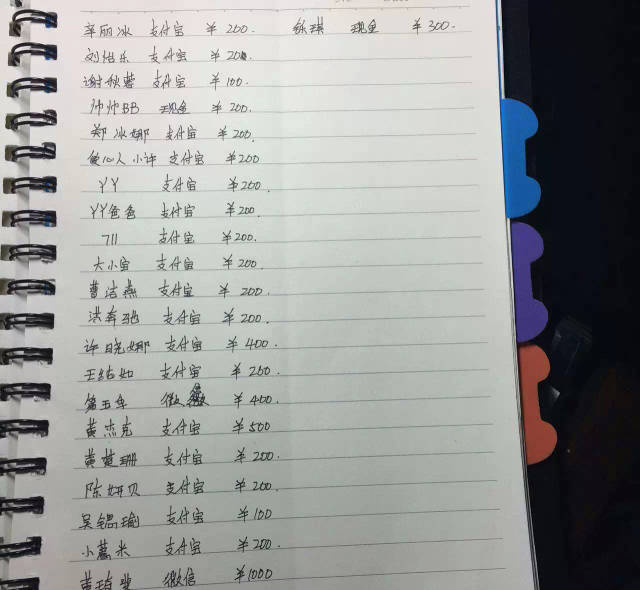 辛丽冰 支付宝 ¥200. 铱琪 现金 ¥300.
刘怡乐 支付宝 ¥200.
谢秋蓉 支付宝 ¥100.
帅帅BB 现金 ¥200.
郑冰娜 支付宝 ¥200.
爱心人小许 支付宝 ¥200
丫丫 支付宝 ¥200.
丫丫爸爸 支付宝 ¥200.
711 支付宝 ¥200.
大小宝 支付宝 ¥200.
曹洁燕 支付宝 ¥200.
洪奔驰 支付宝 ¥200.
许晓娜 支付宝 ¥400.
王结如 支付宝 ¥200.
第五年 微 ¥400.
黄杰克 支付宝 ¥500
黄楚珊 支付宝 ¥200.
陈妍贝 支付宝 ¥200.
吴锶瑜 支付宝 ¥100
小薏米 支付宝 ¥200.
黄 微信 ¥1000